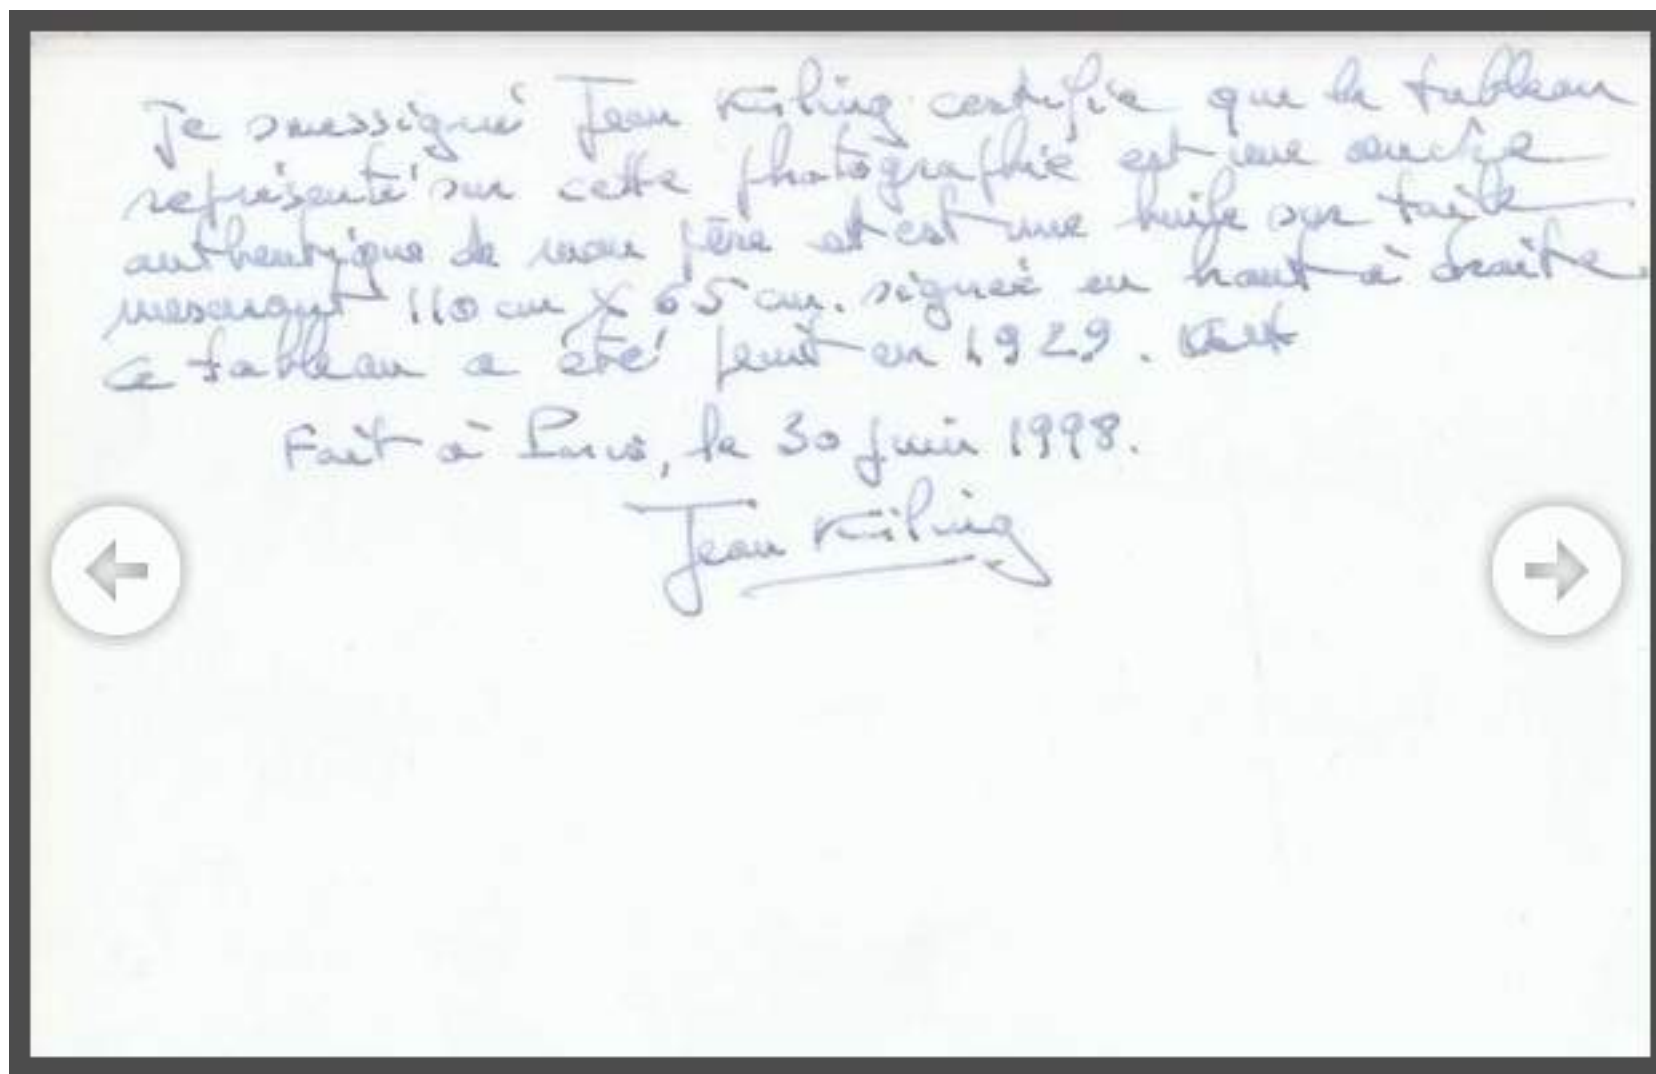 Je soussigné Jean Kisling certifie que le tableau
représenté sur cette photographie est une œuvre
authentique de mon père et est une huile sur toile
mesurant 110 cm X 65 cm. signée en haut à droite.
Ce tableau a été peint en 1929.
Fait à Paris, le 30 juin 1998.
Jean Kisling